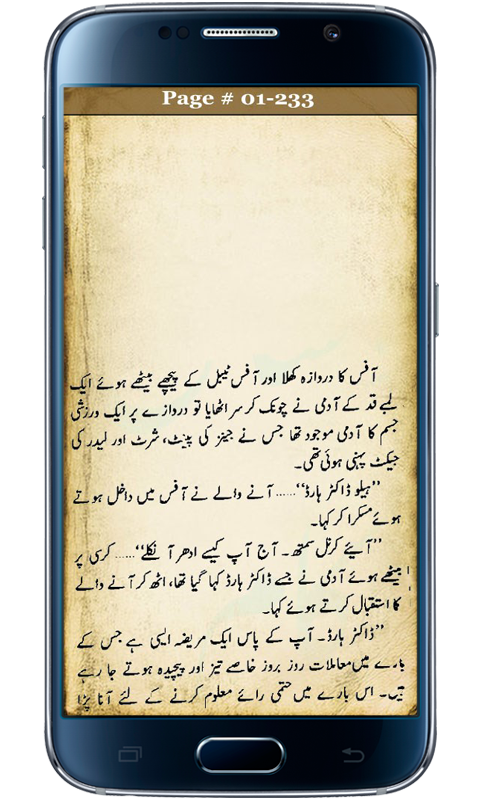 Page # 01-233
آفس کا دروازہ کھلا اور آفس ٹیبل کے پیچھے بیٹھے ہوئے ایک
لمبے قد کے آدمی نے چونک کر سر اٹھایا تو دروازے پر ایک ورزشی
جسم کا آدمی موجود تھا جس نے جینز کی پینٹ، شرٹ اور لیدر کی
جیکٹ پہنی ہوئی تھی۔
”ہیلو ڈاکٹر ہارڈ“...... آنے والے نے آفس میں داخل ہوتے
ہوئے مسکرا کر کہا۔
”آیئے کرنل سمتھ۔ آج آپ کیسے ادھر آ نکلے“...... کرسی پر
بیٹھے ہوئے آدمی نے جسے ڈاکٹر ہارڈ کہا گیا تھا، اٹھ کر آنے والے
کا استقبال کرتے ہوئے کہا۔
”ڈاکٹر ہارڈ۔ آپ کے پاس ایک مریضہ ایسی ہے جس کے
بارے میں معاملات روز بروز خاصے تیز اور پیچیدہ ہوتے جا رہے
ہیں۔ اس بارے میں حتمی رائے معلوم کرنے کے لئے آنا پڑا